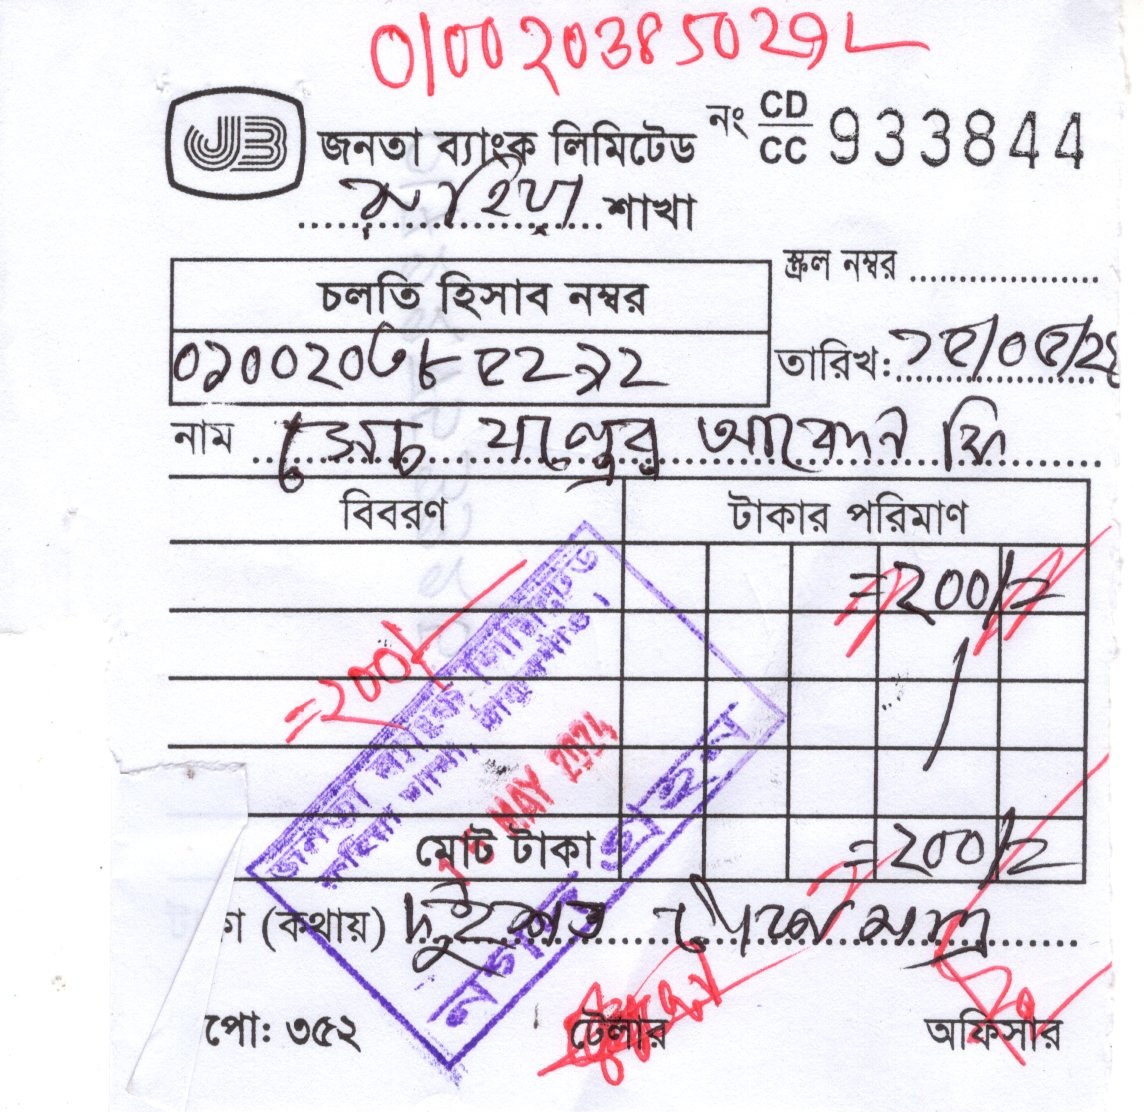 0100203850292
JB
জনতা ব্যাংক লিমিটেড
নং CD/CC 933844
রুহিয়া শাখা
স্ক্রল নম্বর
চলতি হিসাব নম্বর
০১০০২০৩৮৫২৯২
তারিখ: ১৫/০৫/২৪
নাম সেচ যন্ত্রের আবেদন ফি
বিবরণ টাকার পরিমাণ
=২০০/=
=২০০/
জনতা ব্যাংক লিমিটেড
রুহিয়া শাখা, ঠাকুরগাঁও।
MAY 2024
নগদ গ্রহন
মোট টাকা =২০০/=
(কথায়) দুইশত টাকা মাত্র
পো: ৩৫২ টেলার অফিসার